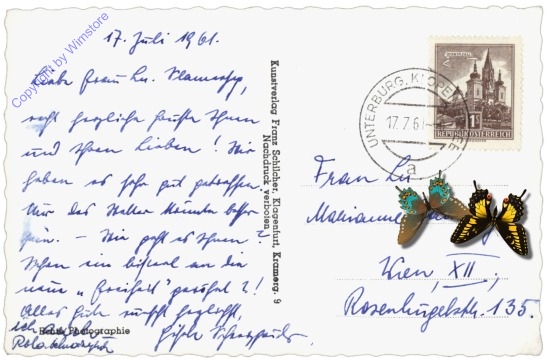 Copyright by Wimstore
17. Juli 1961.
Liebe Frau Lu.
recht herzliche Grüße Ihnen
und Ihren Lieben! Wir
haben es sehr gut getroffen
Nur das Wetter könnte besser
sein. Wie geht es Ihnen?
Schon ein bisserl an die
neue „Freiheit" gewöhnt?!
Alles Gute wünscht herzlichst
Gisela
ich auch
Echte Photographie
Kunstverlag Franz Schilcher, Klagenfurt, Kramerg. 9
Nachdruck verboten
UNTERBURG, KLOPEINER SEE
17.7.61
a
REPUBLIK ÖSTERREICH
Frau Lu
Marianne
Wien, XII,
Rosenhügelstr. 135.